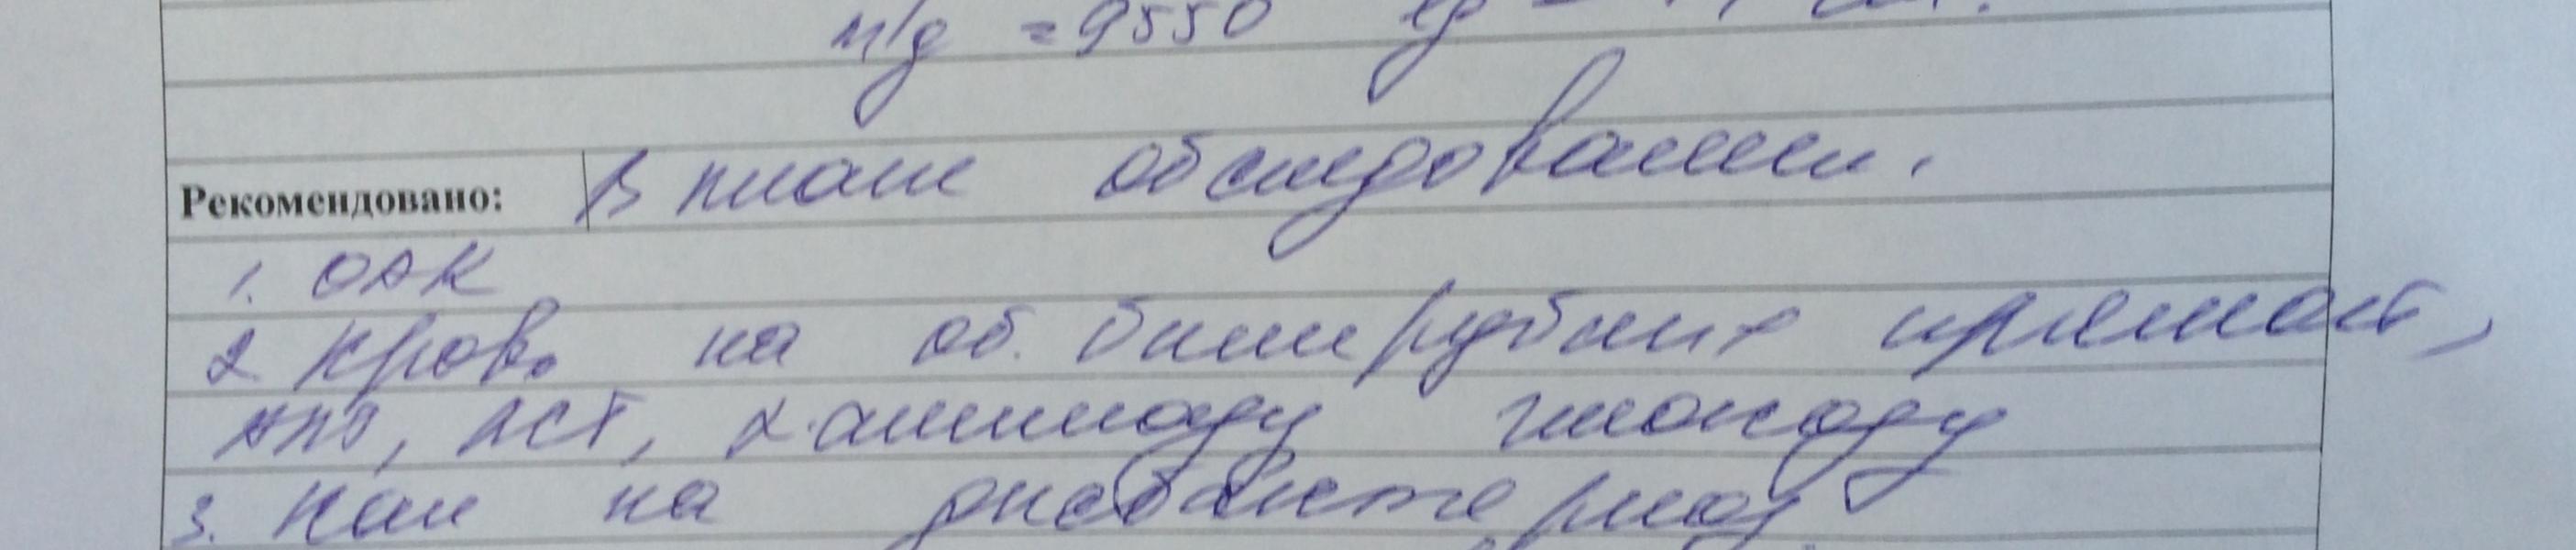 м/д =9550
Рекомендовано: В плане обследования.
1. ОАК
2 Кровь на об. билирубин+ прямой,
АЛТ, АСТ, α-амилазу глюкозу
3. Кал на дисбактериоз